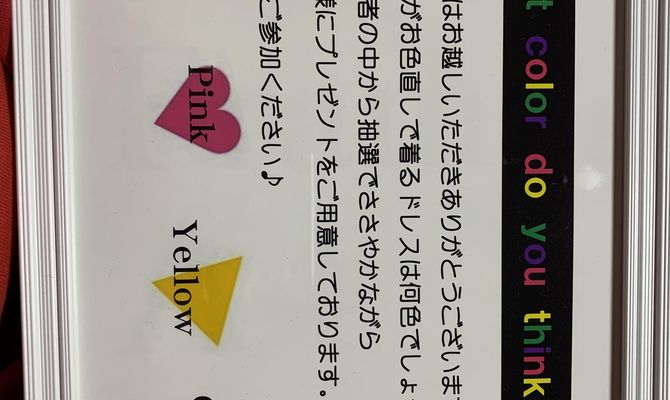 t color do you think
はお越しいただきありがとうございま
がお色直しで着るドレスは何色でしょ
者の中から抽選でささやかながら
様にプレゼントをご用意しております。
ご参加ください♪
Pink Yellow